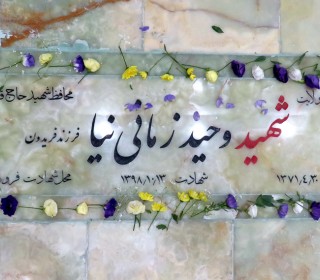 ولادت محافظ شهید حاج
شهید وحید زمانی نیا فرزند فریدون
۱۳۷۱,۴,۳۰ شهادت ۱۳۹۸,۱۰,۱۳ محل شهادت